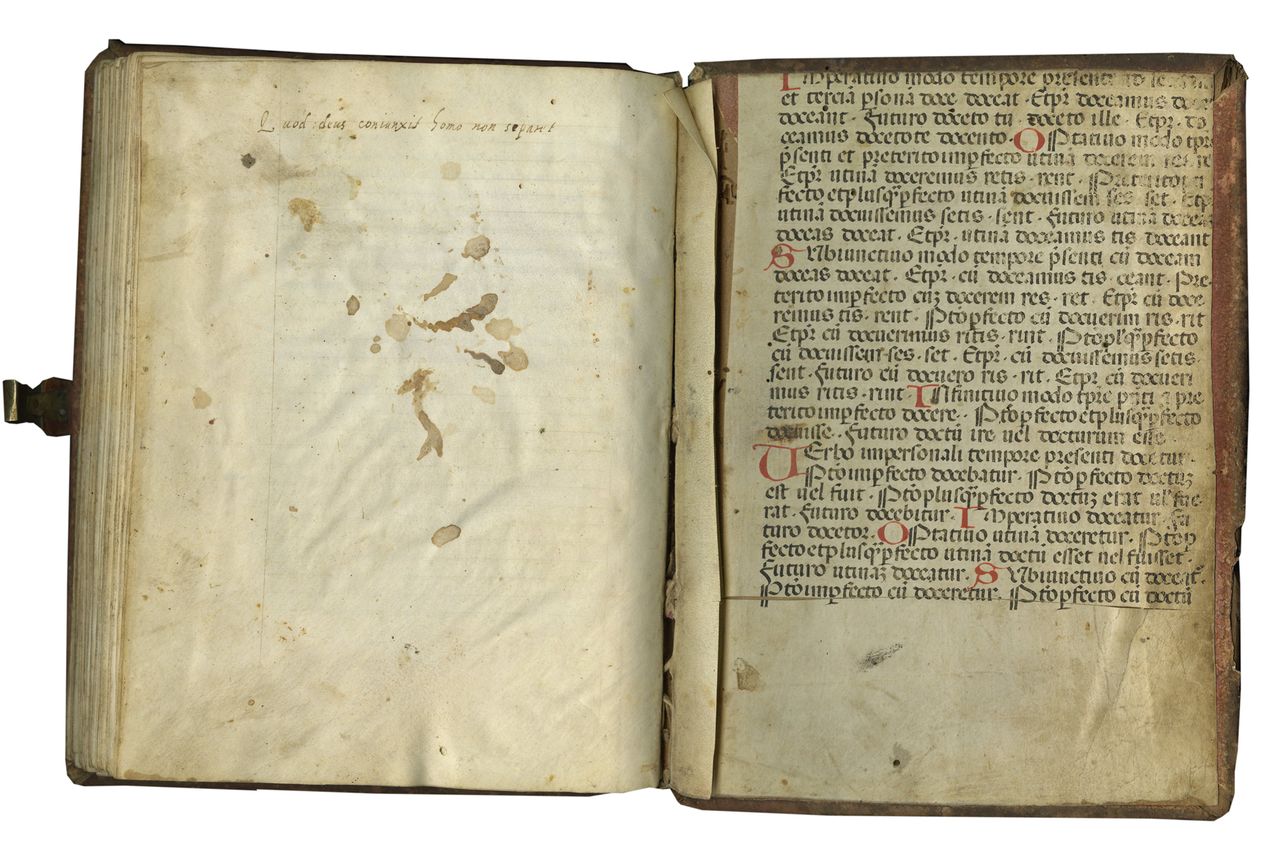 Quod deus coniunxit homo non separet
Imperativo modo tempore presenti
et tercia p̄sona doce. doceat. Etpr̄ doceamus
doceant. Futuro doceto tu. doceto ille. Etpr̄. do
ceamus docetote docento. Optativo modo tpr̄e
p̄senti et preterito imp̄fecto utinā docerem
Etpr̄ utinā doceremus retis. rent. Preterito
fecto et plusq̄ꝑfecto utinā docuissem ses. set. Etp
utinā docuissemus setis. sent. Futuro utinā docea
doceas doceat. Etpr̄. utinā doceamus tis doceant
Subiunctivo modo tempore p̄senti cū doceam
doceas doceat. Etpr̄. cū doceamus tis. ceant. Pre
terito imp̄fecto cuꝫ docerem res. ret. Etpr̄ cū doce
remus tis. rent. Ptōꝑfecto cū docuerim ris. rit
Etpr̄ cū docuerimus ritis. rint. Ptōplusq̄ꝑfecto
cū docuissem. ses. set. Etpr̄. cū docuissemus setis
sent. Futuro cū docuero ris. rit. Etpr̄ cū docueri
mus ritis. rint Infinitivo modo tpr̄e p̄nti ⁊ pre
terito imp̄fecto docere. Ptōꝑfecto et plusq̄ꝑfecto
docuisse. Futuro doctū ire uel docturum esse
Verbo impersonali tempore presenti docetur.
Ptōimp̄fecto docebatur. Ptōꝑfecto doctuꝫ
est uel fuit. Ptōplusq̄ꝑfecto doctuꝫ erat ul' fue
rat. Futuro docebitur. Imperativo doceatur. fu
turo docetor. Optativo utinā doceretur. Ptōꝑ
fecto et plusq̄ꝑfecto utinā doctū esset uel fuisset.
Futuro utinaꝫ doceatur. Subiunctivo cū doceat̄.
Ptōimp̄fecto cū doceretur. Ptōꝑfecto cū doctū